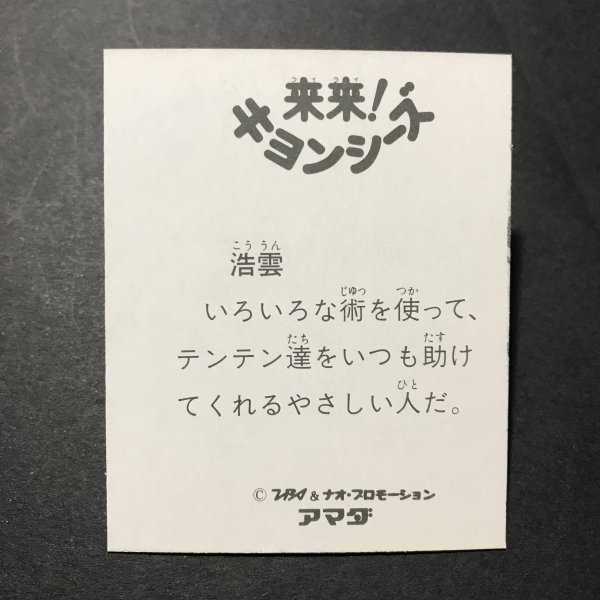 来来!
キョンシーズ
浩雲
いろいろな術を使って、
テンテン達をいつも助け
てくれるやさしい人だ。
© TBS & ナオ・プロモーション
アマダ